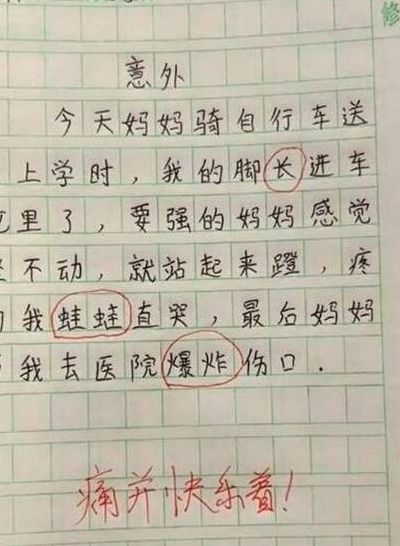 修
意外
今天妈妈骑自行车送
上学时，我的脚长进车
里了，要强的妈妈感觉
不动，就站起来蹬，疼
我蛙蛙直哭，最后妈妈
我去医院爆炸伤口.
痛并快乐着！